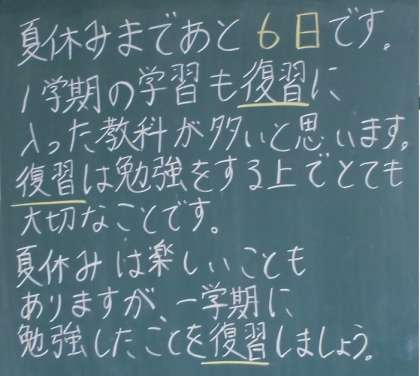 夏休みまであと6日です。
1学期の学習も復習に
入った教科が多いと思います。
復習は勉強をする上でとても
大切なことです。
夏休みは楽しいことも
ありますが、一学期に
勉強したことを復習しましょう。